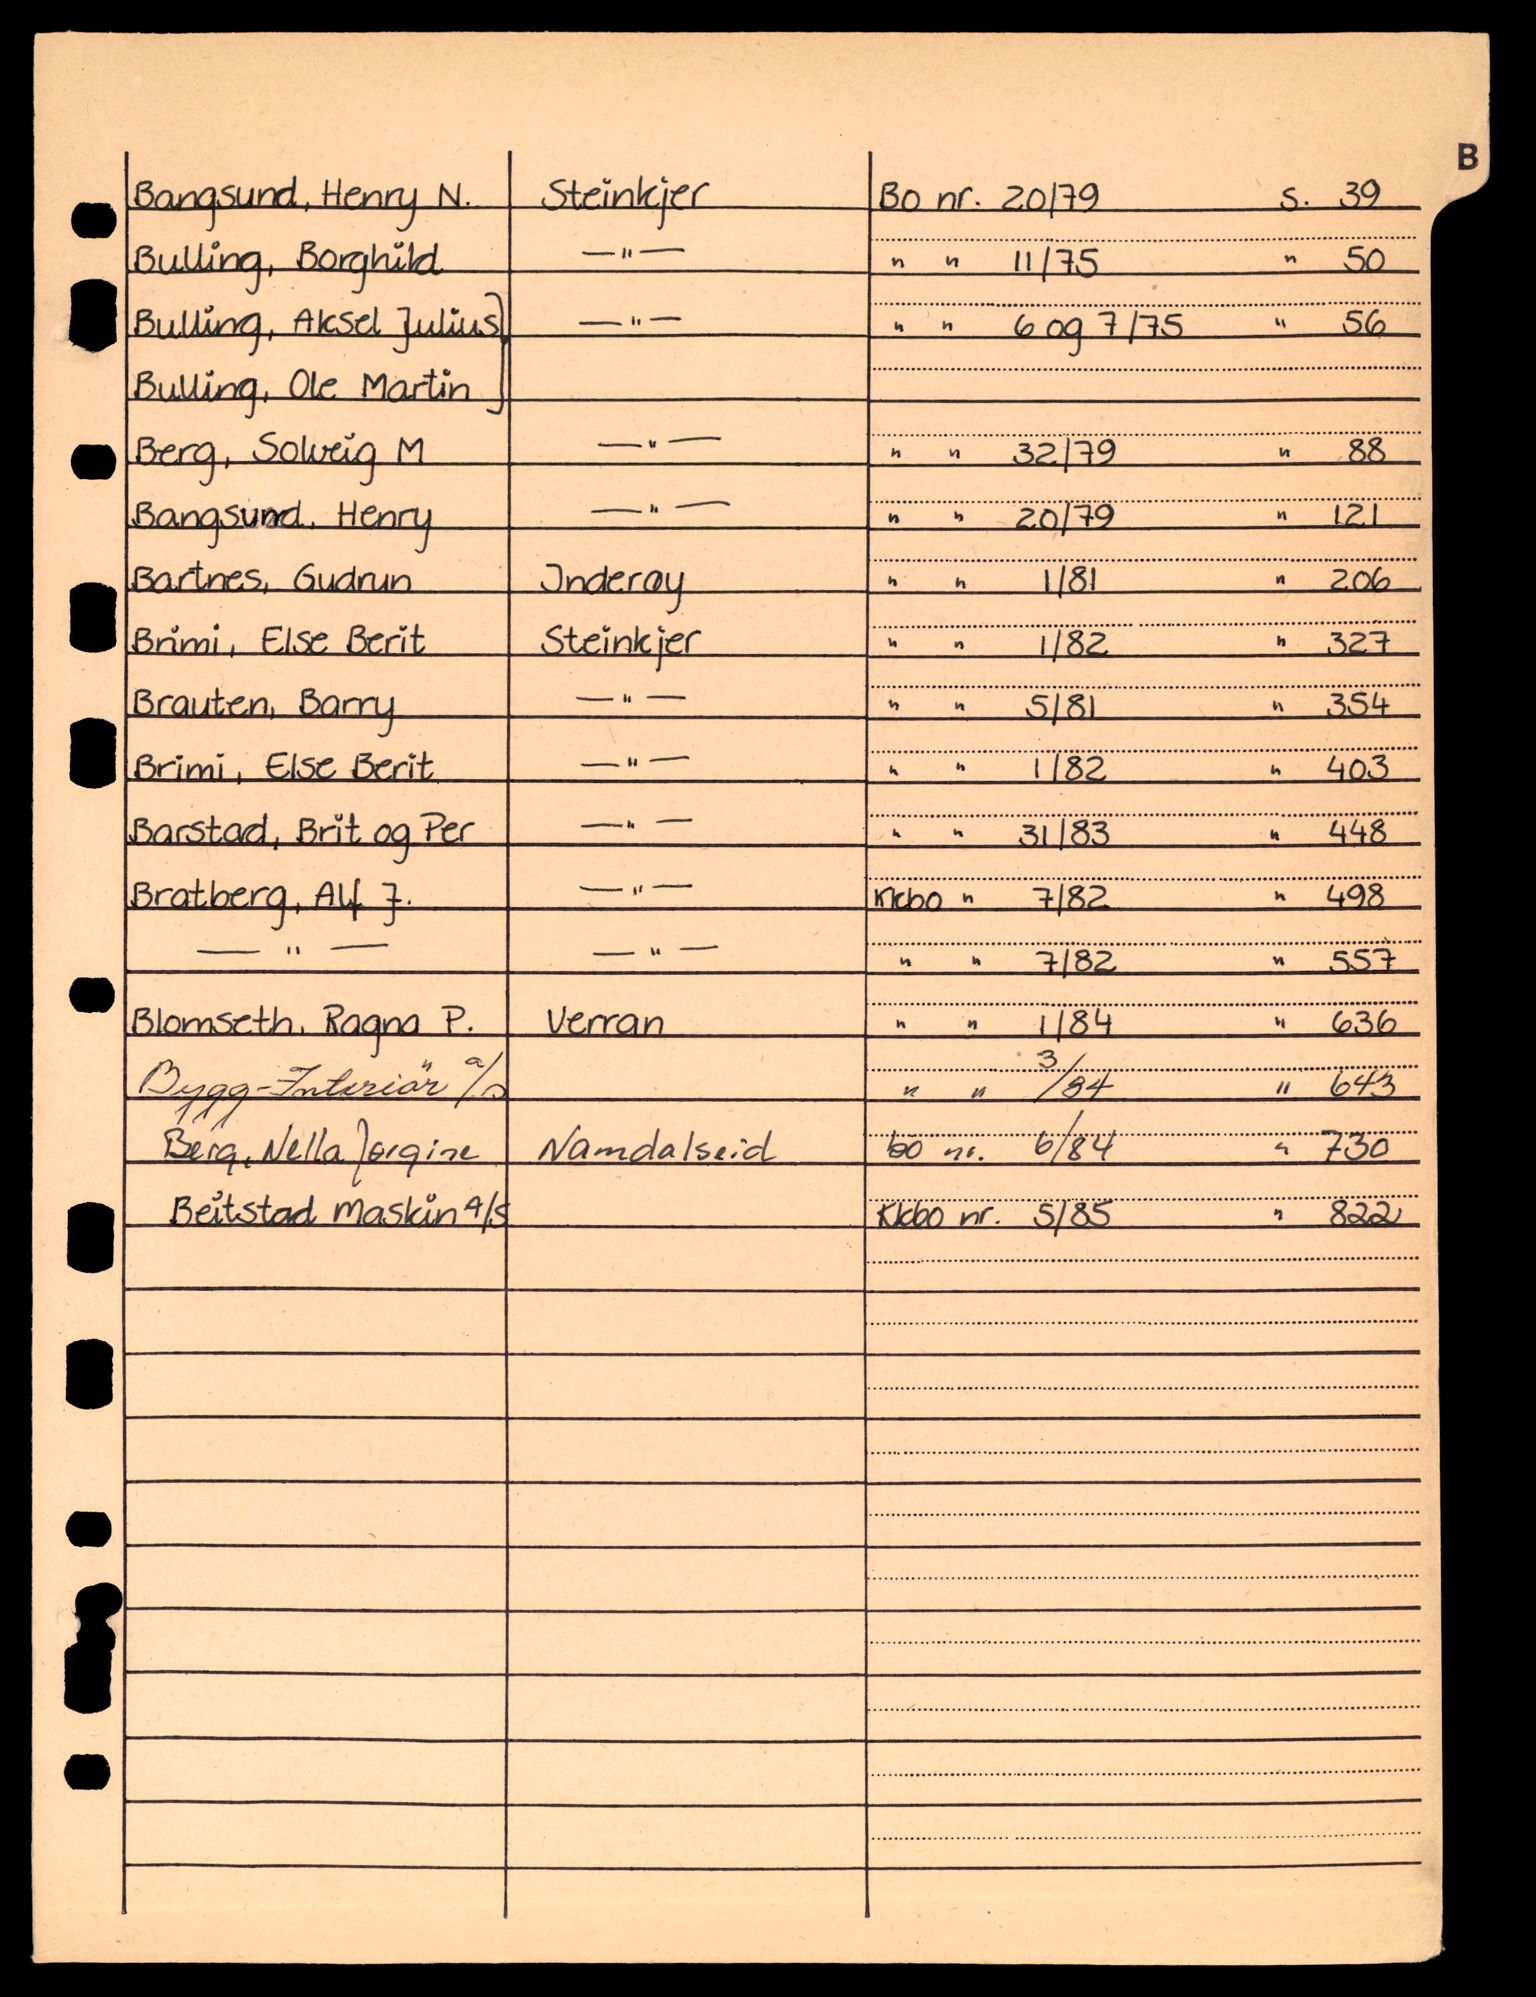 B
Bangsund, Henry N. Steinkjer Bo nr. 20/79 s. 39
Bulling, Borghild — " — " " 11/75 " 50
Bulling, Aksel Julius } — " — " " 6 og 7/75 " 56
Bulling, Ole Martin }
Berg, Solveig M — " — " " 32/79 " 88
Bangsund, Henry — " — " " 20/79 " 121
Bartnes, Gudrun Inderøy " " 1/81 " 206
Brimi, Else Berit Steinkjer " " 1/82 " 327
Brauten, Barry — " — " " 5/81 " 354
Brimi, Else Berit — " — " " 1/82 " 403
Barstad, Brit og Per — " — " " 31/83 " 448
Bratberg, Alf J. — " — Kkbo " 7/82 " 498
— " — — " — " " 7/82 " 557
Blomseth, Ragna P. Verran " " 1/84 " 636
Bygg-Interiör a/s " " 3/84 " 643
Berg, Nella Jørgine Namdalseid bo nr. 6/84 " 730
Beitstad Maskin A/S Kkbo nr. 5/85 " 822